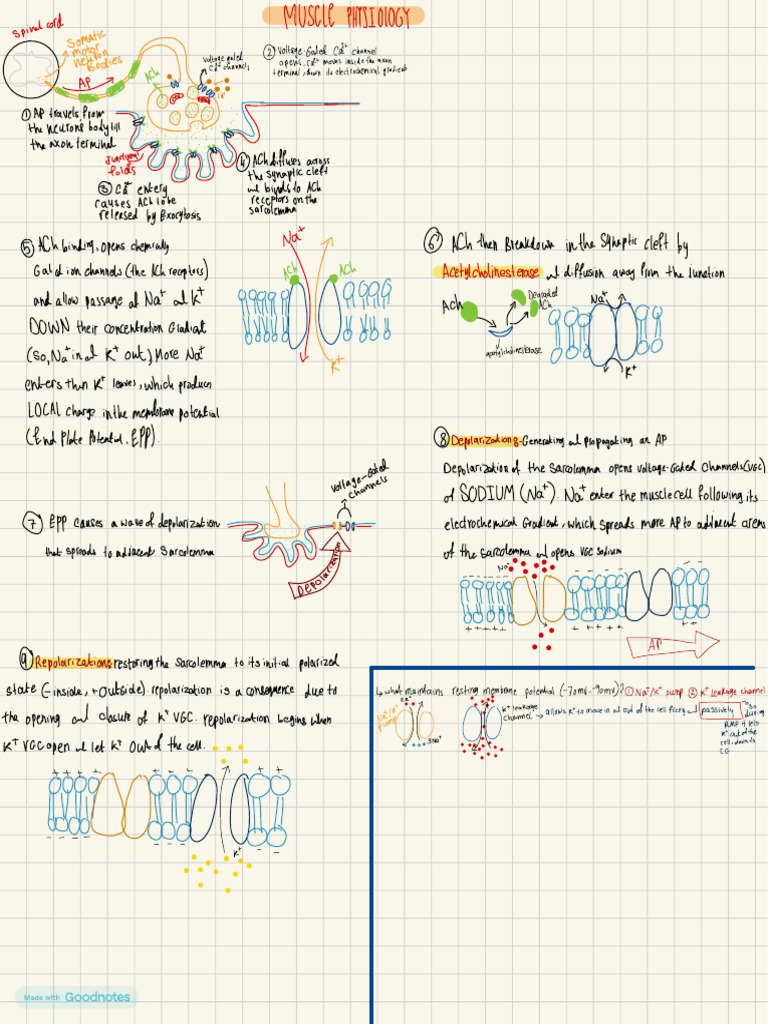 MUSCLE PHYSIOLOGY
spinal cord
Somatic
motor
neuron
bodies
AP
ACh
Voltage gated
Ca²⁺ channels
① AP travels from
the neurons body till
the axon terminal
② Voltage-Gated Ca²⁺ channel
opens, Ca²⁺ moves inside the axon
terminal, down its electrochemical gradient
Junctional
folds
③ Ca²⁺ entery
causes ACh to be
released by Exocytosis
④ ACh diffuses across
the synaptic cleft
and binds to ACh
receptors on the
sarcolemma
⑤ ACh binding, opens chemically
Gated ion channels (the ACh receptors)
and allow passage of Na⁺ and K⁺
DOWN their concentration Gradient
(So, Na⁺ in and K⁺ out) More Na⁺
enters than K⁺ leaves, which produces
LOCAL charge in the membrane potential
(End Plate Potential, EPP)
Na⁺
ACh
ACh
K⁺
⑥ ACh then Breakdown in the Synaptic cleft by
Acetylcholinesterase and diffusion away from the Junction
ACh
Degraded
ACh
acetylcholinesterase
Na⁺
K⁺
⑦ EPP causes a wave of depolarization
that spreads to adjacent sarcolemma
Voltage-Gated
channels
DEPOLARIZATION
⑧ Depolarization:- Generating and propagating an AP
Depolarization of the sarcolemma opens voltage-Gated Channels (VGC)
of SODIUM (Na⁺). Na⁺ enter the muscle cell following its
electrochemical Gradient, which spreads more AP to adjacent areas
of the sarcolemma and opens VGC sodium
Na⁺
AP
⑨ Repolarization: restoring the sarcolemma to its initial polarized
state (-inside, +outside). repolarization is a consequence due to
the opening and closure of K⁺ VGC. repolarization begins when
K⁺ VGC open and let K⁺ out of the cell.
K⁺
↳ what maintains resting membrane potential (-70mv--90mv)? ① Na⁺/K⁺ pump ② K⁺ Leakage channel
Na⁺/K⁺
pump
2K⁺
3Na⁺
K⁺ leakage
channel → allows K⁺ to move in and out of the cell freely and passively → So
during
RMP it lets
K⁺ out of the
cell, down its
CG
Made with Goodnotes